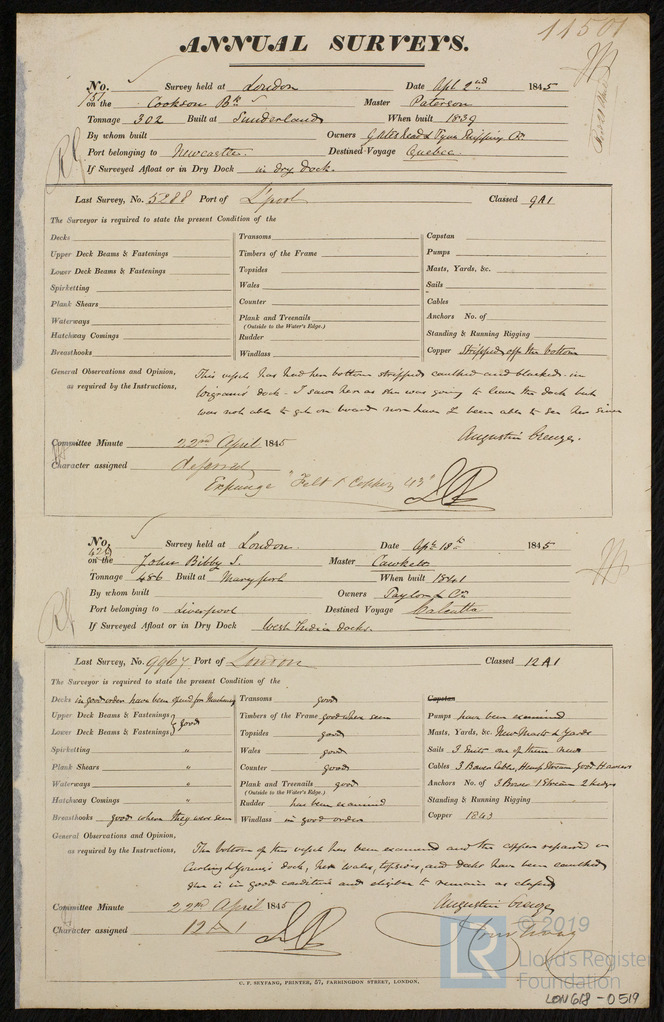 11501
ANNUAL SURVEYS.
No. 151 Survey held at London Date Apl 2nd 1845
on the Cookson Bk Master Paterson
Tonnage 302 Built at Sunderland When built 1839
By whom built Owners Gateshead & Tyne Shipping Co.
Port belonging to Newcastle Destined Voyage Quebec
If Surveyed Afloat or in Dry Dock in dry dock.
Last Survey, No. 5288 Port of L'pool Classed 9A1
The Surveyor is required to state the present Condition of the
Decks Transoms Capstan
Upper Deck Beams & Fastenings Timbers of the Frame Pumps
Lower Deck Beams & Fastenings Topsides Masts, Yards, &c.
Spirketting Wales Sails
Plank Shears Counter Cables
Waterways Plank and Treenails Anchors No. of
(Outside to the Water's Edge.)
Hatchway Comings Rudder Standing & Running Rigging
Breasthooks Windlass Copper Stripped off the bottom
General Observations and Opinion, This vessel has had her bottom stripped caulked and blacked in
as required by the Instructions, Wigram's dock. I saw her as she was going to leave the dock but
was not able to get on board nor have I been able to see her since
Augustin Creuze.
Committee Minute 22nd April 1845
Character assigned deferred
Expunge "Felt & Copper 43"
No. 426 Survey held at London. Date Apl. 18th 1845
on the John Bibby S. Master Cawkett
Tonnage 486 Built at Maryport When built 1841
By whom built Owners Taylor & Co.
Port belonging to Liverpool Destined Voyage Calcutta
If Surveyed Afloat or in Dry Dock West India docks.
Last Survey, No. 9967 Port of London Classed 12A1
The Surveyor is required to state the present Condition of the
Decks in good order have been Transoms good Capstan
Upper Deck Beams & Fastenings good Timbers of the Frame good where seen Pumps have been examined
Lower Deck Beams & Fastenings Topsides good Masts, Yards, &c. New Masts & Yards
Spirketting " Wales good Sails 3 Suits one of them new
Plank Shears " Counter good Cables 3 Bower Cables, Hemp Stream good Hawsers
Waterways " Plank and Treenails good Anchors No. of 3 Bower 1 Stream 2 kedges
(Outside to the Water's Edge.)
Hatchway Comings " Rudder has been examined Standing & Running Rigging
Breasthooks good where they were seen Windlass in good order Copper 1843
General Observations and Opinion, The bottom of this vessel has been examined and the copper repaired in
as required by the Instructions, Curling & Young's dock, her wales, topsides, and decks have been caulked
she is in good condition and eligible to remain as classed
Augustin Creuze
Committee Minute 22nd April 1845
Character assigned 12A1
C. F. SEYFANG, PRINTER, 57, FARRINGDON STREET, LONDON.
LR © 2019
Lloyd's Register
Foundation
LON618-0519